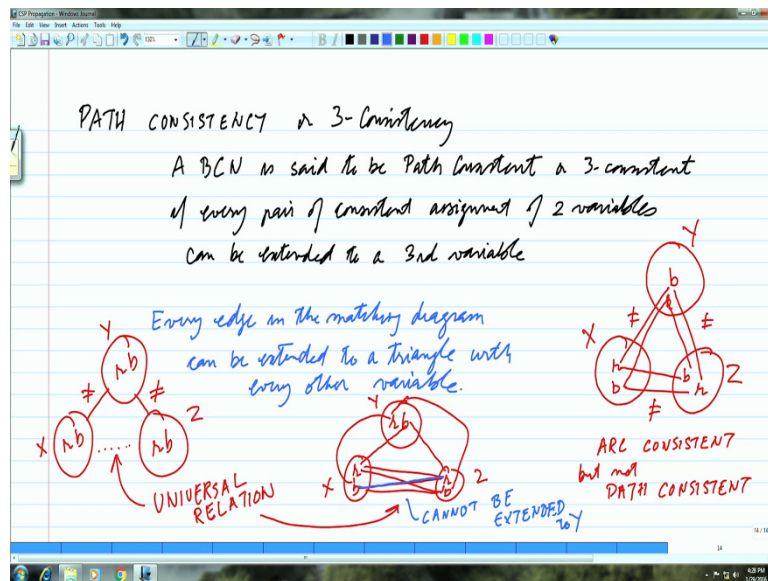 CSP Propagation - Windows Journal
File Edit View Insert Actions Tools Help
100%
B I
PATH CONSISTENCY or 3-Consistency
A BCN is said to be Path Consistent or 3-consistent
if every pair of consistent assignment of 2 variables
can be extended to a 3rd variable
Every edge in the matching diagram
can be extended to a triangle with
every other variable.
Y
r b
≠ ≠
X r b ...... r b Z
UNIVERSAL
RELATION
Y
r b
X r b
r b Z
CANNOT BE
EXTENDED
to Y
Y
b
r
≠ ≠
X r b
b r Z
≠
ARC CONSISTENT
but not
PATH CONSISTENT
14 / 14
14
4:28 PM